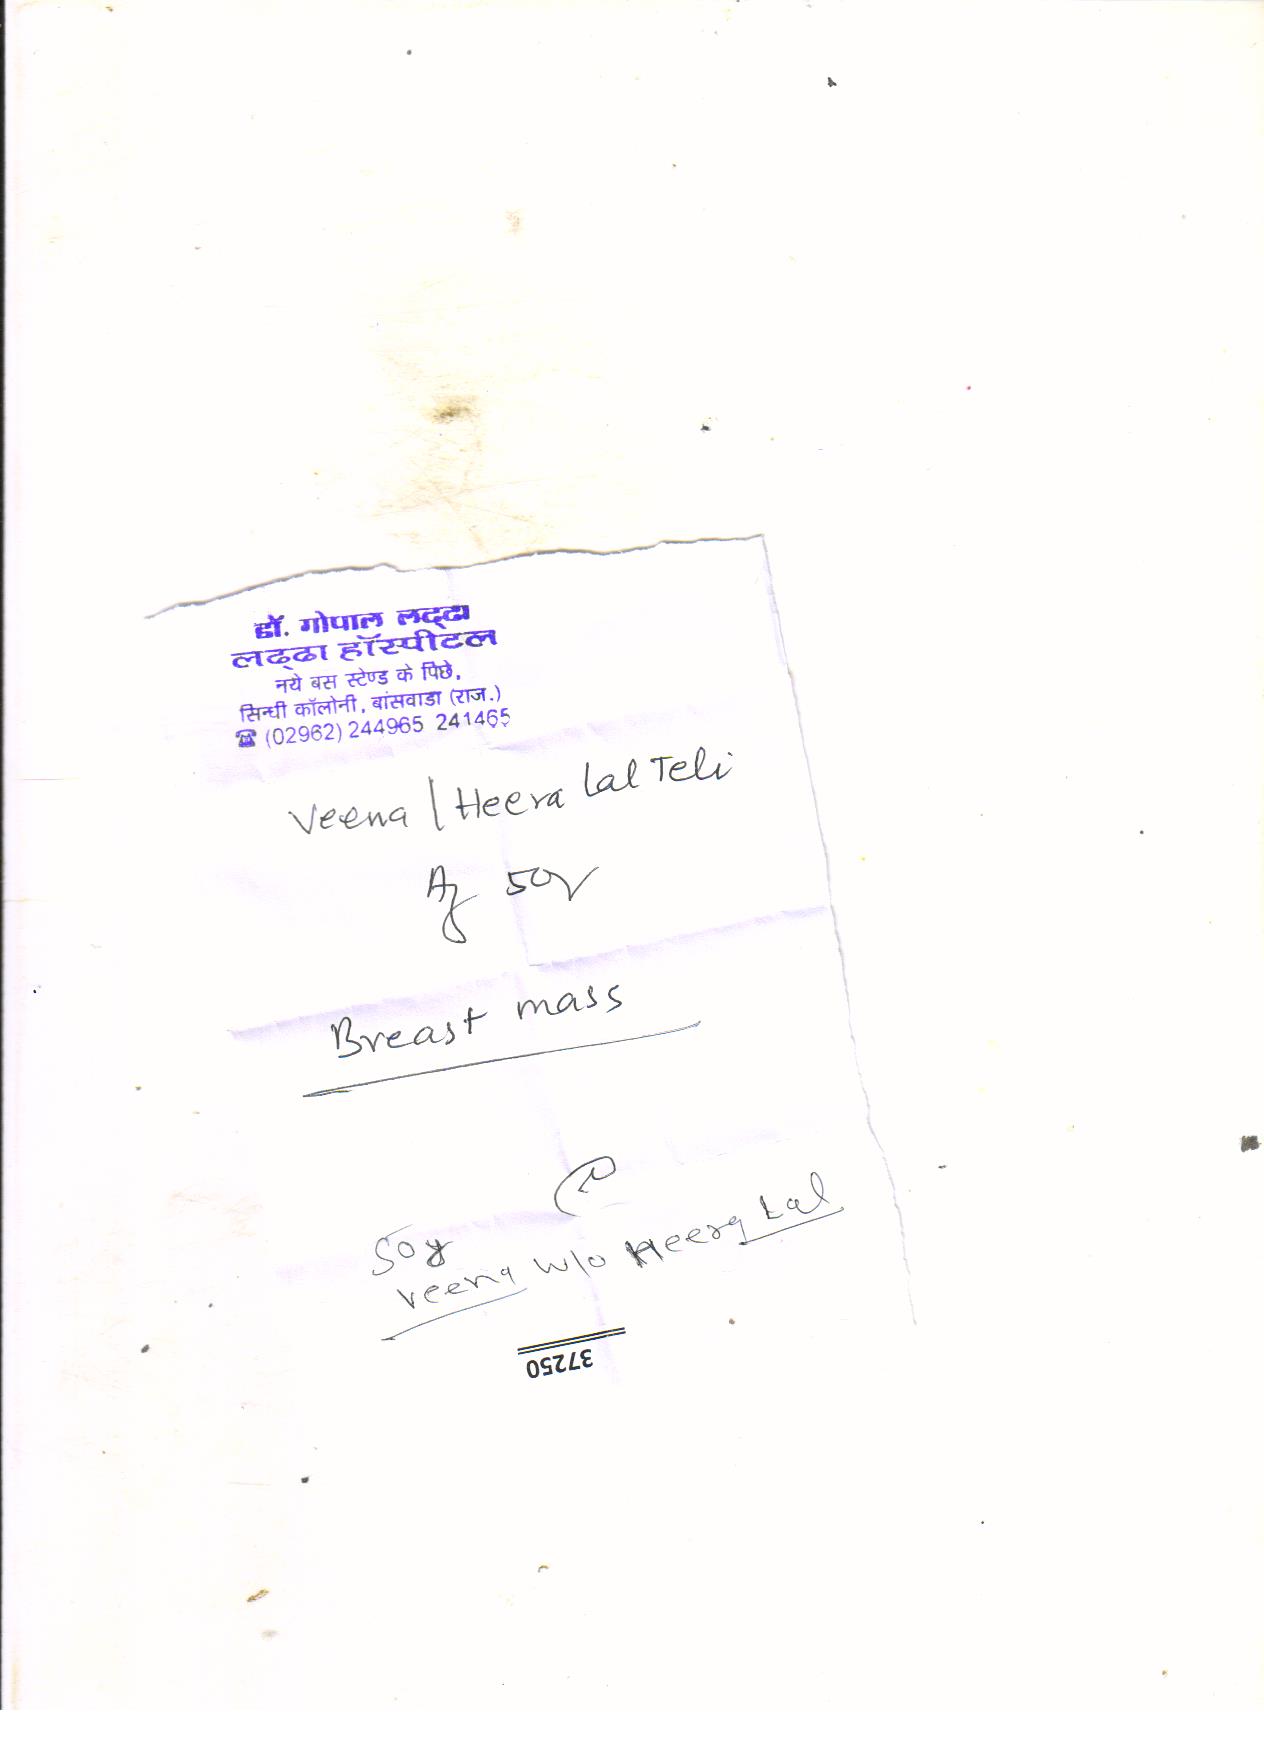 डॉ. गोपाल लद्ढा
लद्ढा हॉस्पीटल
नये बस स्टेण्ड के पिछे,
सिन्धी कॉलोनी, बांसवाडा (राज.)
☎ (02962) 244965 241465
Veena / Heera Lal Teli
50y
Breast mass
50y
Veena W/o Heera Lal
37250